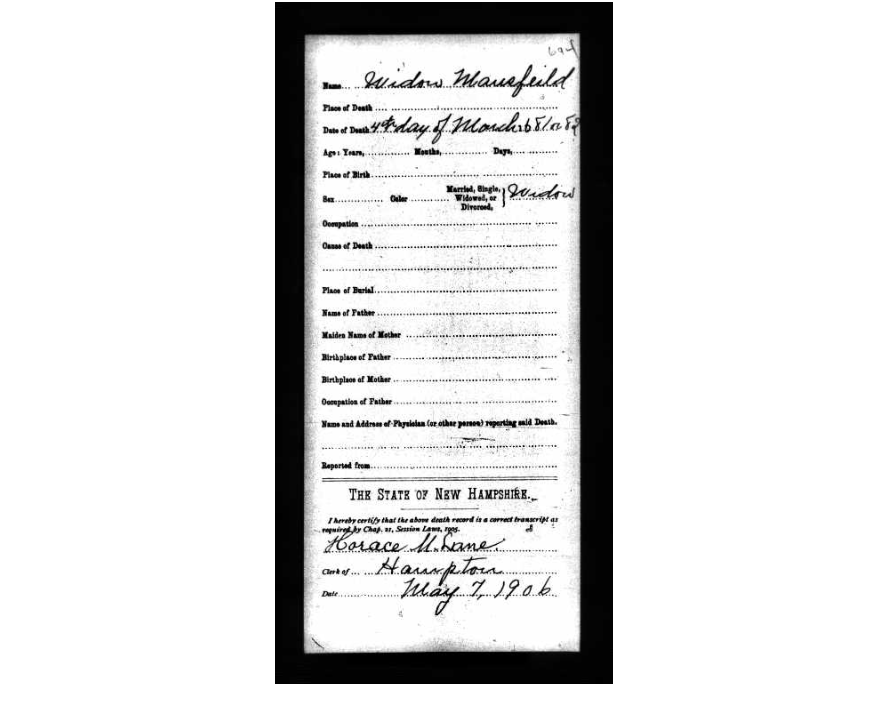 694
Name Widow Mansfeild
Place of Death
Date of Death 4th day of March 1681 or 82
Age: Years, Months, Days,
Place of Birth
Sex Color Married, Single, Widowed, or Divorced, } Widow
Occupation
Cause of Death
Place of Burial
Name of Father
Maiden Name of Mother
Birthplace of Father
Birthplace of Mother
Occupation of Father
Name and Address of Physician (or other person) reporting said Death.
Reported from
THE STATE OF NEW HAMPSHIRE.
I hereby certify that the above death record is a correct transcript as
required by Chap. 21, Session Laws, 1905.
Horace M. Lane.
Clerk of Hampton
Date May 7, 1906